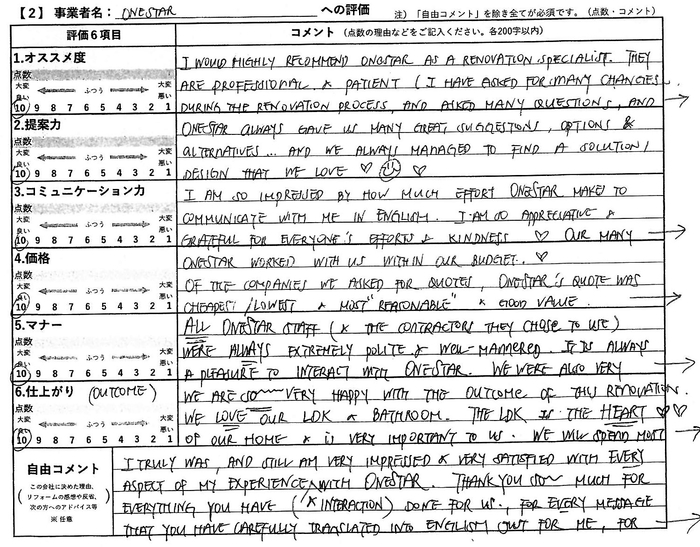 【2】事業者名: ONESTAR への評価 注)「自由コメント」を除き全てが必須です。(点数・コメント)
評価6項目 コメント(点数の理由などをご記入ください。各200字以内)
1.オススメ度
点数
大変良い ふつう 大変悪い
10 9 8 7 6 5 4 3 2 1
I WOULD HIGHLY RECOMMEND ONESTAR AS A RENOVATION SPECIALIST. THEY
ARE PROFESSIONAL & PATIENT (I HAVE ASKED FOR MANY CHANGES
DURING THE RENOVATION PROCESS, AND ASKED MANY QUESTIONS, AND →
2.提案力
点数
大変良い ふつう 大変悪い
10 9 8 7 6 5 4 3 2 1
ONESTAR ALWAYS GAVE US MANY GREAT SUGGESTIONS, OPTIONS &
ALTERNATIVES... AND WE ALWAYS MANAGED TO FIND A SOLUTION/
DESIGN THAT WE LOVE ♡ ☺ ♡
3.コミュニケーション力
点数
大変良い ふつう 大変悪い
10 9 8 7 6 5 4 3 2 1
I AM SO IMPRESSED BY HOW MUCH EFFORT ONESTAR MAKE TO
COMMUNICATE WITH ME IN ENGLISH. I AM SO APPRECIATIVE &
GRATEFUL FOR EVERYONE'S EFFORTS & KINDNESS ♡ OUR MANY →
4.価格
点数
大変良い ふつう 大変悪い
10 9 8 7 6 5 4 3 2 1
ONESTAR WORKED WITH US WITHIN OUR BUDGET. ♡
OF THE COMPANIES WE ASKED FOR QUOTES, ONESTAR'S QUOTE WAS
CHEAPEST/LOWEST & MOST "REASONABLE" & GOOD VALUE. →
5.マナー
点数
大変良い ふつう 大変悪い
10 9 8 7 6 5 4 3 2 1
ALL ONESTAR STAFF (& THE CONTRACTORS THEY CHOSE TO USE)
WERE ALWAYS EXTREMELY POLITE & WELL-MANNERED. IT IS ALWAYS
A PLEASURE TO INTERACT WITH ONESTAR. WE WERE ALSO VERY →
6.仕上がり (OUTCOME)
点数
大変良い ふつう 大変悪い
10 9 8 7 6 5 4 3 2 1
WE ARE SO VERY HAPPY WITH THE OUTCOME OF THIS RENOVATION.
WE LOVE OUR LDK & BATHROOM. THE LDK IS THE HEART ♡♡
OF OUR HOME & IS VERY IMPORTANT TO US. WE WILL SPEND MOST →
自由コメント
(この会社に決めた理由、リフォームの感想や反省、次の方へのアドバイス等)
※ 任意
I TRULY WAS, AND STILL AM VERY IMPRESSED & VERY SATISFIED WITH EVERY
ASPECT OF MY EXPERIENCE WITH ONESTAR. THANK YOU SO MUCH FOR
(& INTERACTION)
EVERYTHING YOU HAVE DONE FOR US, FOR EVERY MESSAGE
THAT YOU HAVE CAREFULLY TRANSLATED INTO ENGLISH JUST FOR ME, FOR →